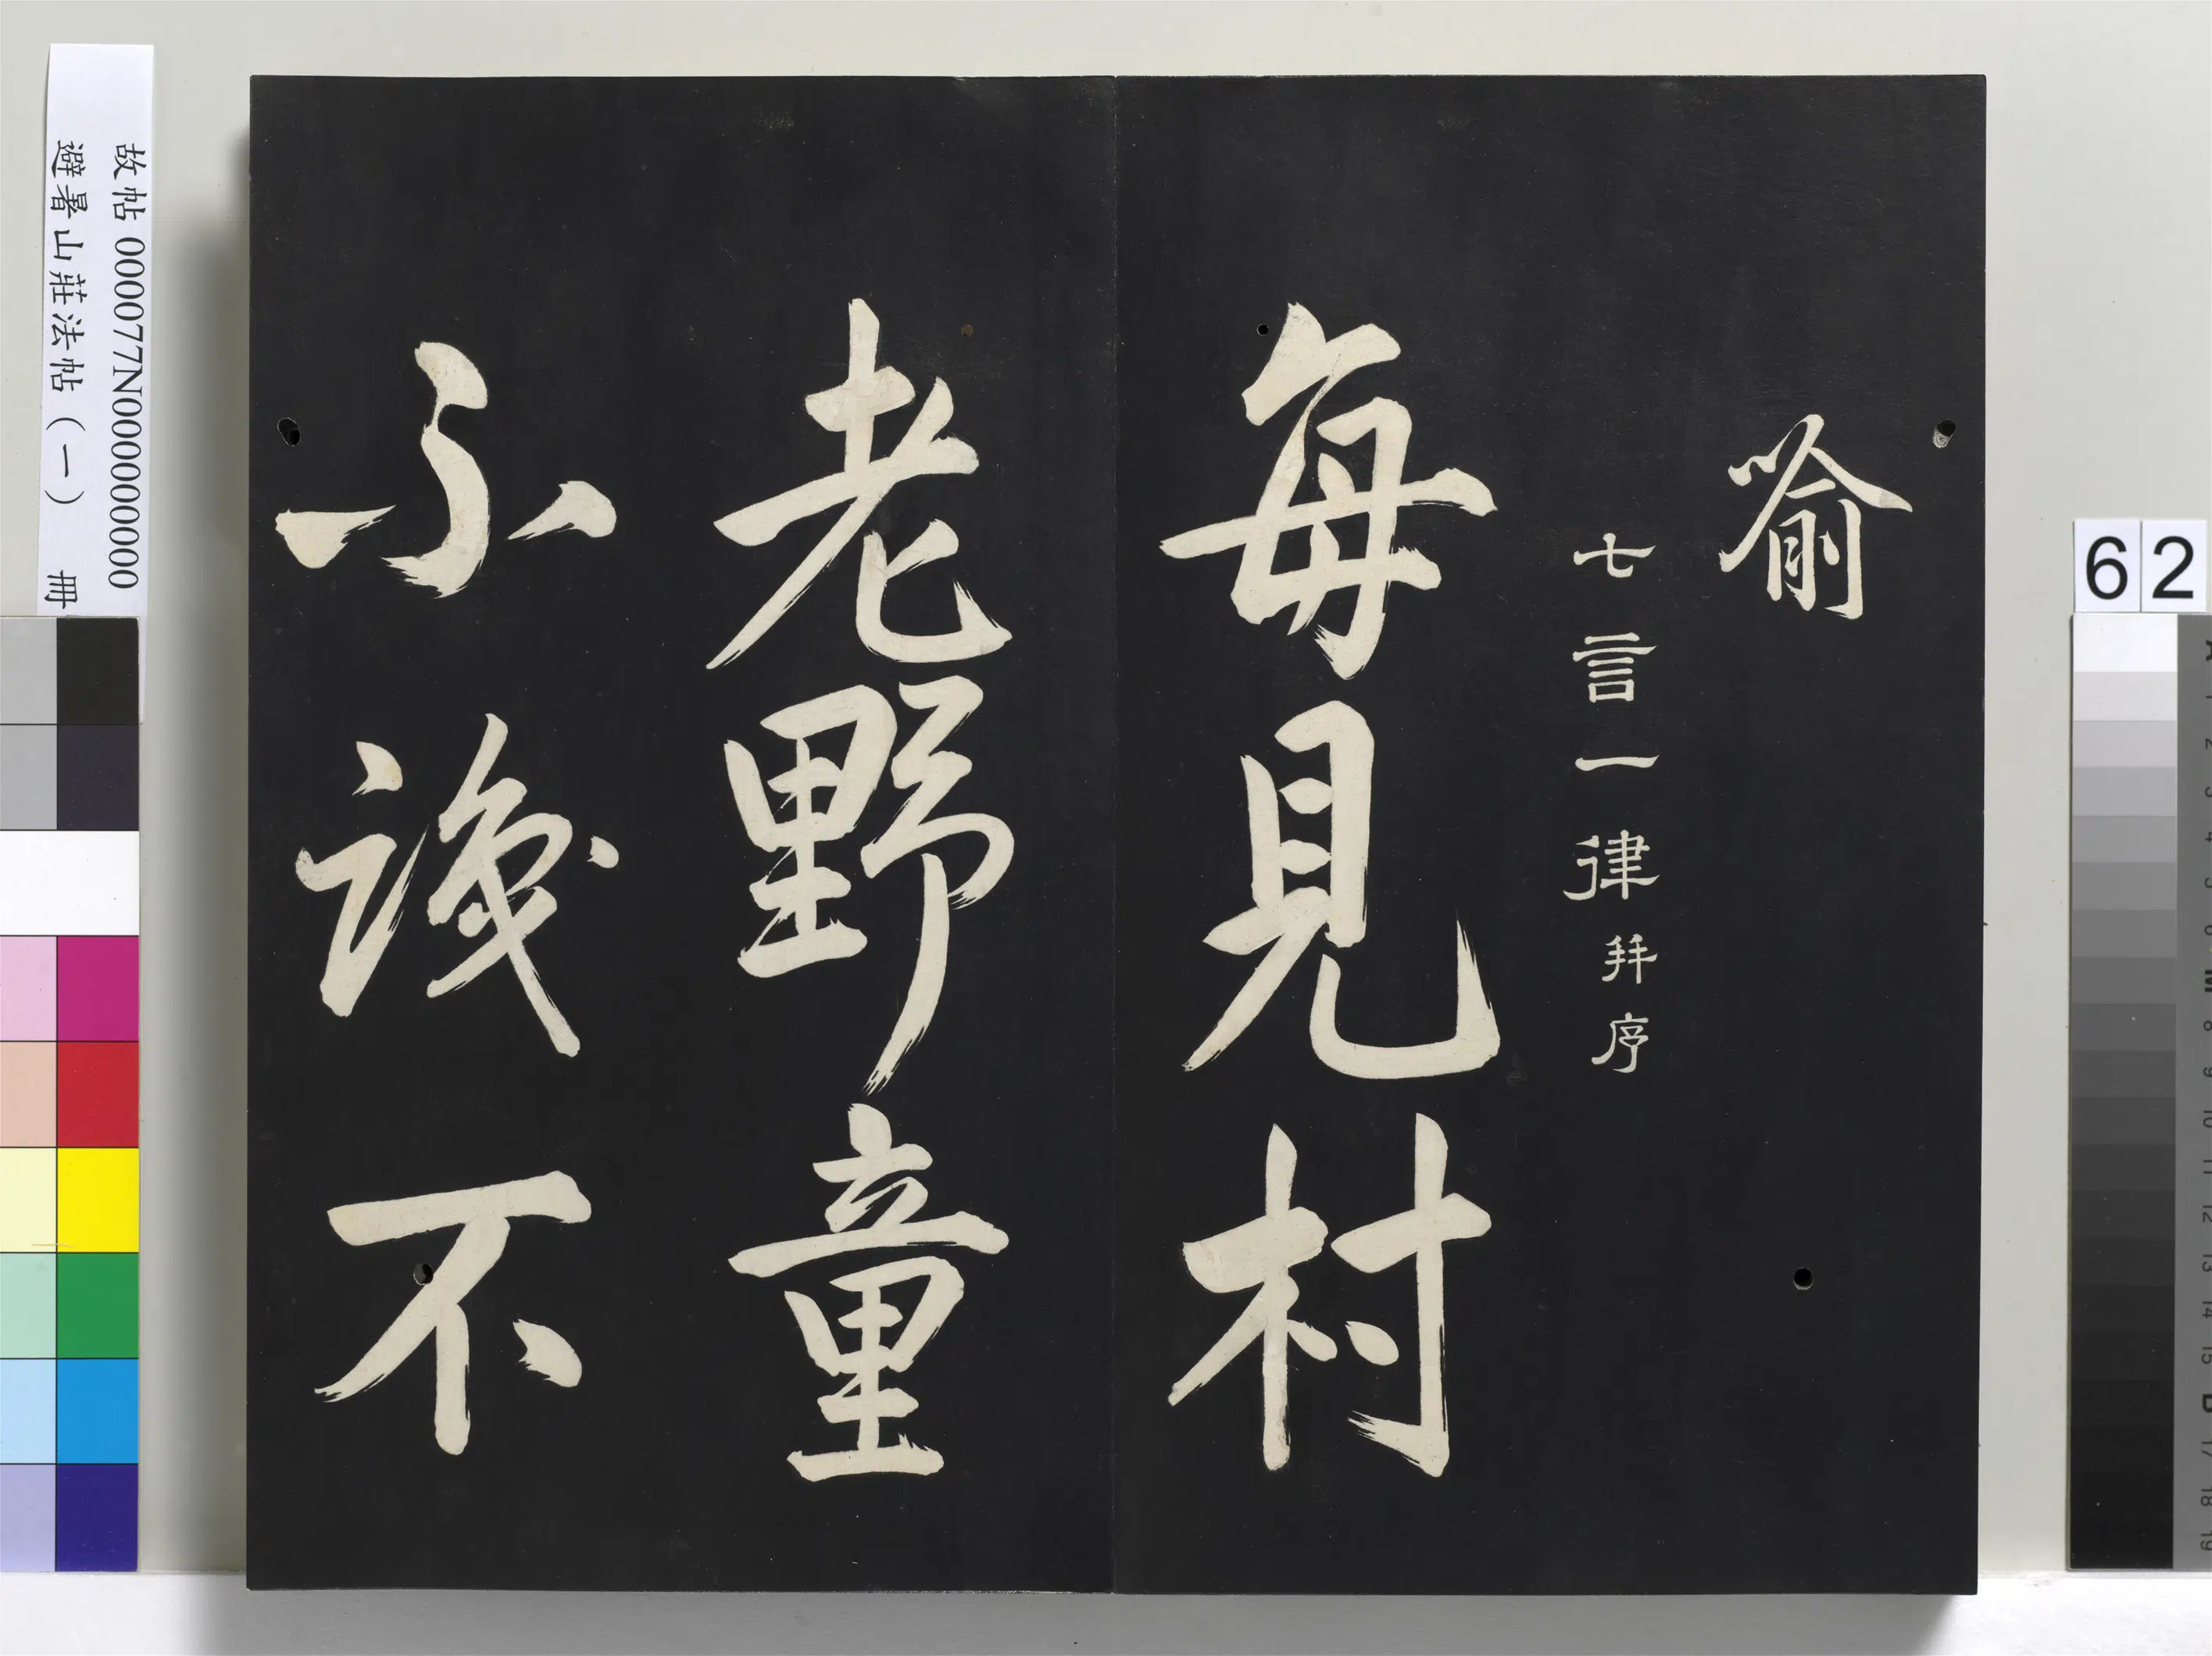 喻
七言一律幷序
每見村
老野童
不識不
故帖 000077N000000000
避暑山莊法帖（一） 冊
62